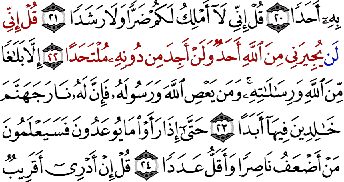 بِهِۦٓ أَحَدًا ٢٠ قُلْ إِنِّى لَآ أَمْلِكُ لَكُمْ ضَرًّا وَلَا رَشَدًا ٢١ قُلْ إِنِّى
لَن يُجِيرَنِى مِنَ ٱللَّهِ أَحَدٌ وَلَنْ أَجِدَ مِن دُونِهِۦ مُلْتَحَدًا ٢٢ إِلَّا بَلَٰغًا
مِّنَ ٱللَّهِ وَرِسَٰلَٰتِهِۦ وَمَن يَعْصِ ٱللَّهَ وَرَسُولَهُۥ فَإِنَّ لَهُۥ نَارَ جَهَنَّمَ
خَٰلِدِينَ فِيهَآ أَبَدًا ٢٣ حَتَّىٰٓ إِذَا رَأَوْا۟ مَا يُوعَدُونَ فَسَيَعْلَمُونَ
مَنْ أَضْعَفُ نَاصِرًا وَأَقَلُّ عَدَدًا ٢٤ قُلْ إِنْ أَدْرِىٓ أَقَرِيبٌ